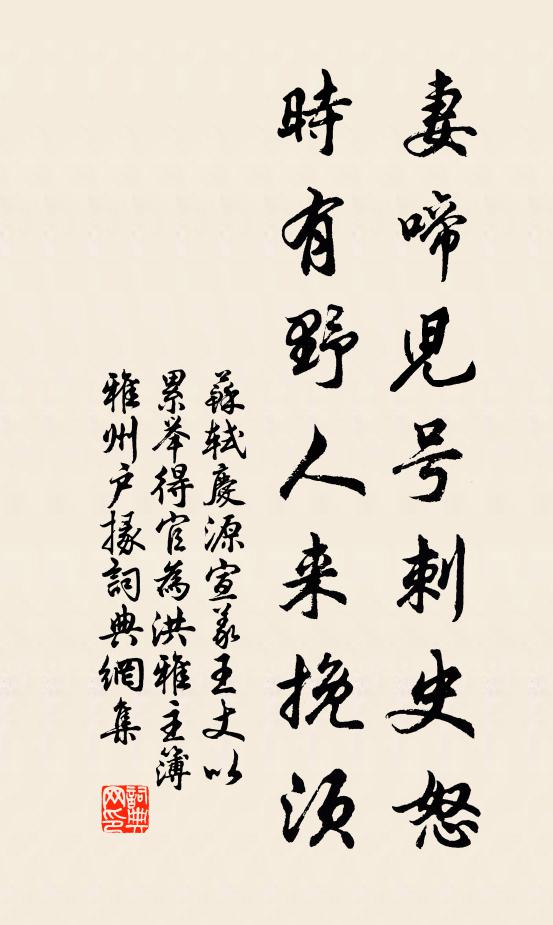 妻啼児号刺史怒
時有野人来挽须
蘇軾慶源宣義王丈以
累举得官為洪雅主簿
雅州户掾詞典網集
詞典网印